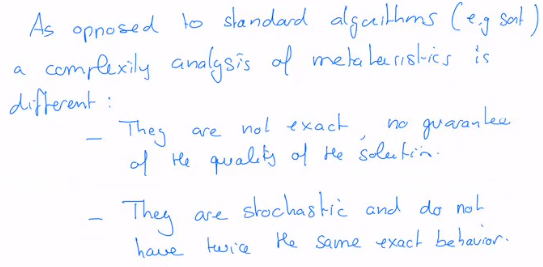 As opposed to standard algorithms (e.g sort)
a complexity analysis of metaheuristics is
different :
– They are not exact, no guarantee
of the quality of the solution.
– They are stochastic and do not
have twice the same exact behavior.